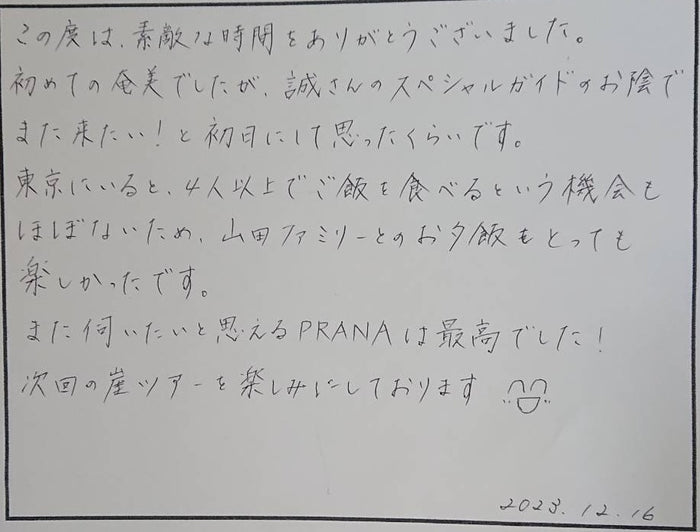 この度は、素敵な時間をありがとうございました。
初めての奄美でしたが、誠さんのスペシャルガイドのお陰で
また来たい！と初日にして思ったくらいです。
東京にいると、4人以上でご飯を食べるという機会も
ほぼないため、山田ファミリーとのお夕飯もとっても
楽しかったです。
また伺いたいと思えるPRANAは最高でした！
次回の崖ツアーを楽しみにしております
2023.12.16